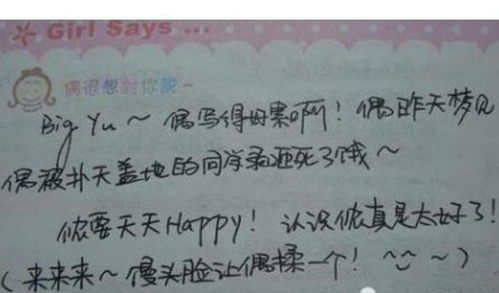 Girl Says ...
偶很想對你說~
Big Yu ~ 偶写得好累啊! 偶昨天梦见
偶被扑天盖地的同学录砸死了哦~
侬要天天Happy! 认识侬真是太好了!
(来来来~馒头脸让偶揉一个! ^‿^ ~)